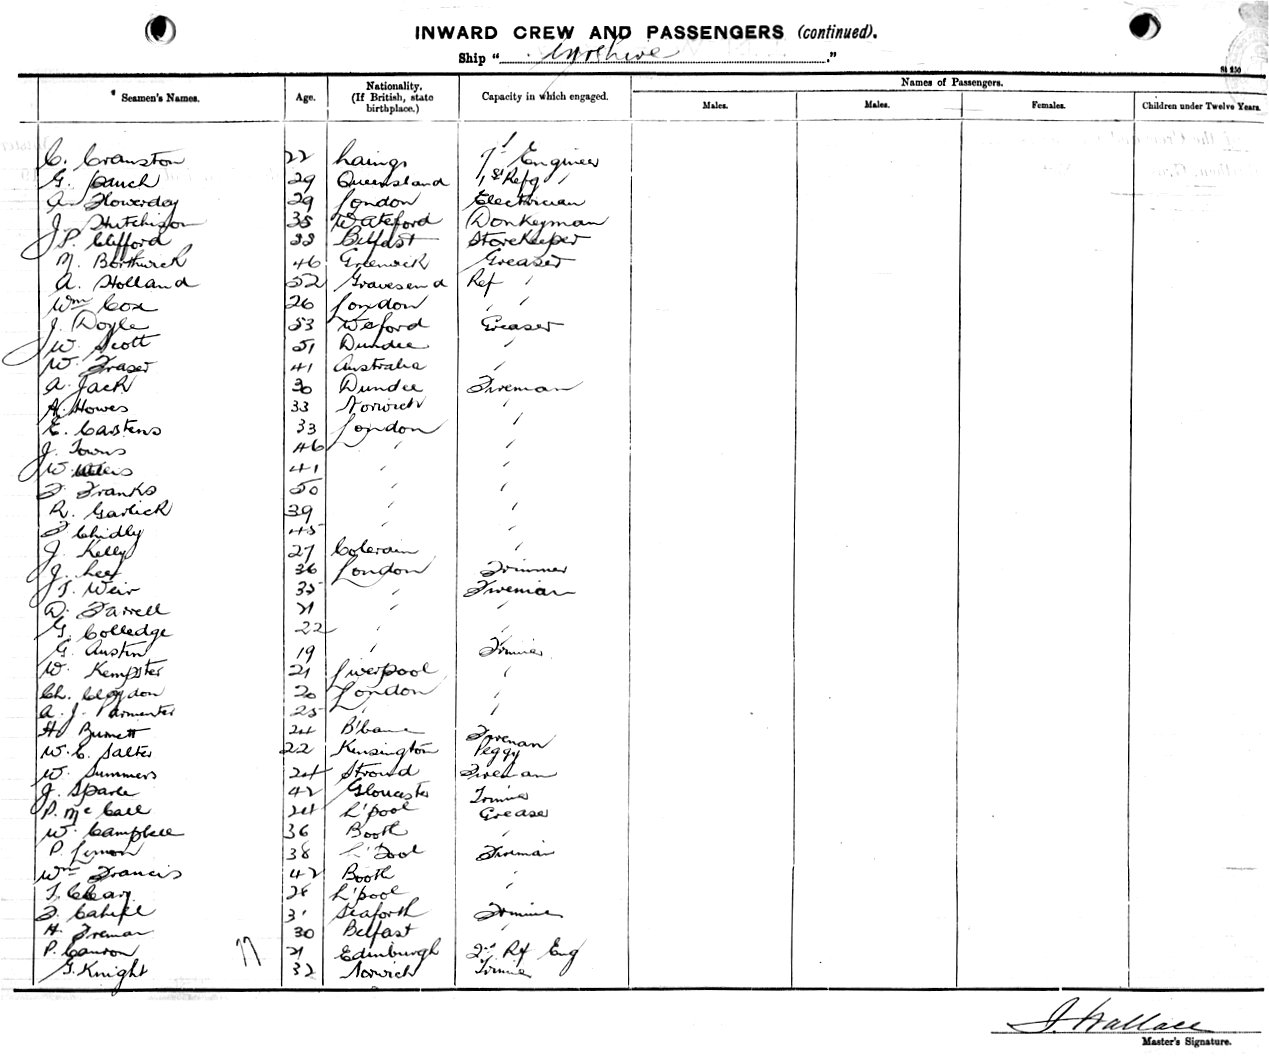 INWARD CREW AND PASSENGERS (continued).
Ship " Ayrshire ."
Seamen's Names. Age. Nationality. (If British, state birthplace.) Capacity in which engaged. Names of Passengers.
Males. Males. Females. Children under Twelve Years.
C. Cranston 22 Engineer
G. Gauch 29 Queensland 1st Refg "
A. Flowerday 29 London Electrician
J. Hutchison 35 Wateford Donkeyman
J. P. Clifford 33 Belfast Storekeeper
M. Borthwick 46 Greenwick Greaser
A. Holland 52 Gravesend Ref "
Wm Cox 26 London " "
J. Doyle 53 Wexford Greaser
W. Scott 51 Dundee "
W. Fraser 41 Australia "
A. Jack 30 Dundee Fireman
A. Howes 33 Norwich "
E. Carstens 33 London "
J. Towns 46 " "
W. 41 " "
F. Franks 50 " "
R. Garlick 39 " "
F. Chidly 45 " "
J. Kelly 27 Colerain "
J. Lee 36 London Trimmer
T. Weir 35 " Fireman
D. Farrell 21 " "
G. Colledge 22 " "
G. Austin 19 " Trimmer
W. Kempster 21 Liverpool "
Ch. Claydon 20 London "
A. J. Parmenter 25 " "
H. Burnett 24 B'bane Fireman
W. C. Salter 22 Kensington Peggy
W. Summers 24 Stroud Fireman
J. Spark 42 Gloucester Trimmer
P. McCall 24 L'pool Greaser
W. Campbell 36 Bootle "
P. Lemon 38 L'pool Fireman
Wm Francis 42 Bootle "
T. Cleary 28 L'pool "
F. Cahill 31 Seaforth Trimmer
H. Freman 30 Belfast "
P. 21 Edinburgh 2nd Rf Eng
G. Knight 32 Norwich Trimmer
77
J. Wallace
Master's Signature.